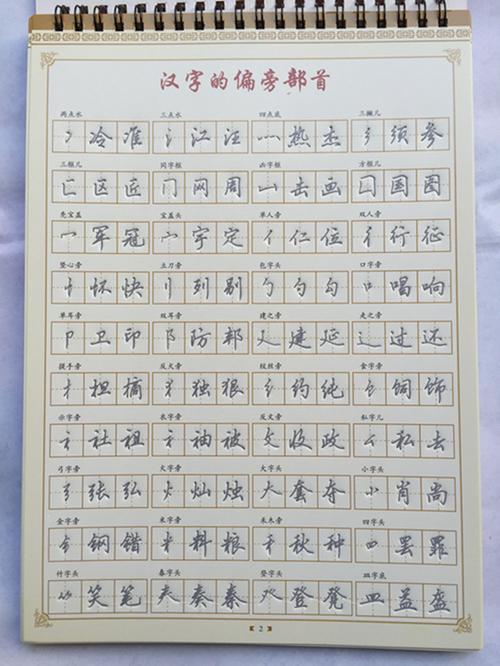 汉字的偏旁部首
两点水 三点水 四点底 三撇儿
冫冷准 氵江汪 灬热杰 彡须参
三框儿 同字框 凶字框 方框儿
匚区匠 冂网周 凵击画 囗国图
秃宝盖 宝盖头 单人旁 双人旁
冖军冠 宀字定 亻仁位 彳行征
竖心旁 立刀旁 包字头 口字旁
忄怀快 刂到别 勹勺勾 口唱响
单耳旁 双耳旁 建之旁 走之旁
卩卫印 阝防邦 廴建延 辶过还
提手旁 反犬旁 绞丝旁 食字旁
扌担摘 犭独狠 纟约纯 饣饲饰
示字旁 衣字旁 反文旁 私字儿
礻社祖 衤袖被 攵收政 厶私去
弓字旁 火字旁 大字头 小字头
弓张弘 火灿烛 大套夺 小肖尚
金字旁 米字旁 禾木旁 四字头
钅钢错 米料粮 禾秋种 罒罢罪
竹字头 春字头 登字头 皿字底
⺮笑笔 𡗗奏秦 癶登凳 皿益盛
2